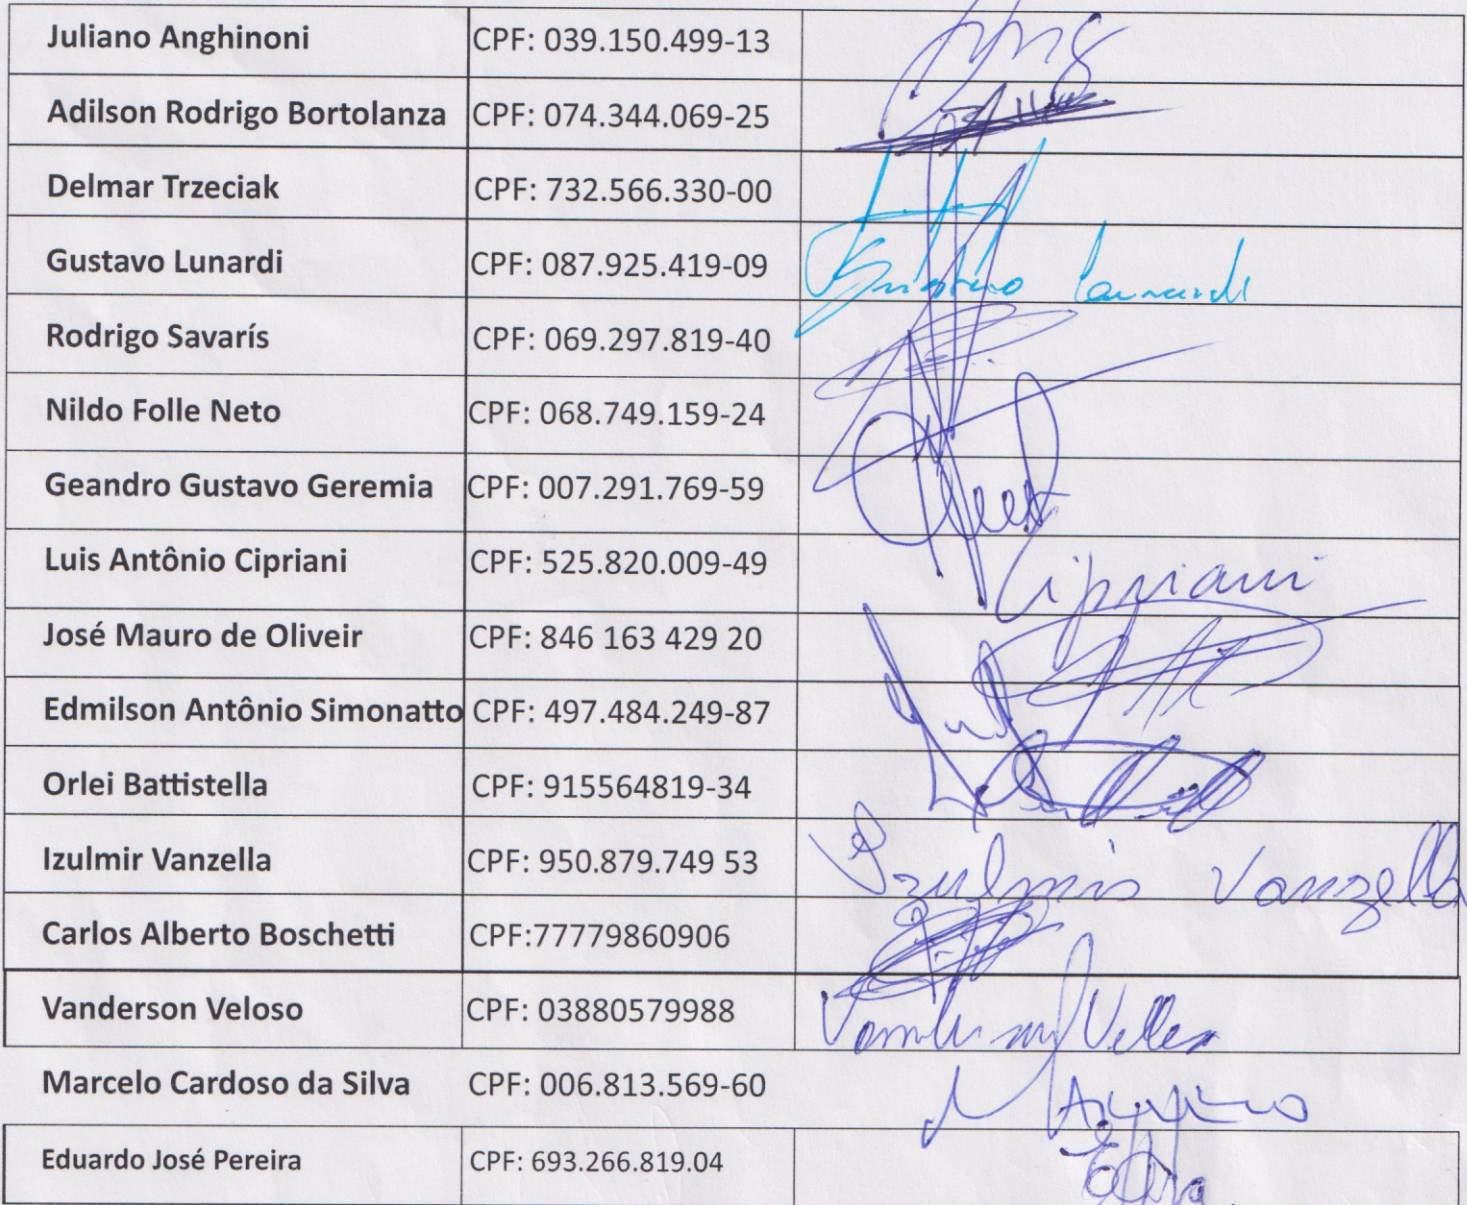 Juliano Anghinoni CPF: 039.150.499-13
Adilson Rodrigo Bortolanza CPF: 074.344.069-25
Delmar Trzeciak CPF: 732.566.330-00
Gustavo Lunardi CPF: 087.925.419-09 Gustavo Lunardi
Rodrigo Savarís CPF: 069.297.819-40
Nildo Folle Neto CPF: 068.749.159-24
Geandro Gustavo Geremia CPF: 007.291.769-59
Luis Antônio Cipriani CPF: 525.820.009-49 Cipriani
José Mauro de Oliveir CPF: 846 163 429 20
Edmilson Antônio Simonatto CPF: 497.484.249-87
Orlei Battistella CPF: 915564819-34
Izulmir Vanzella CPF: 950.879.749 53 Izulmir Vanzella
Carlos Alberto Boschetti CPF:77779860906
Vanderson Veloso CPF: 03880579988
Marcelo Cardoso da Silva CPF: 006.813.569-60
Eduardo José Pereira CPF: 693.266.819.04